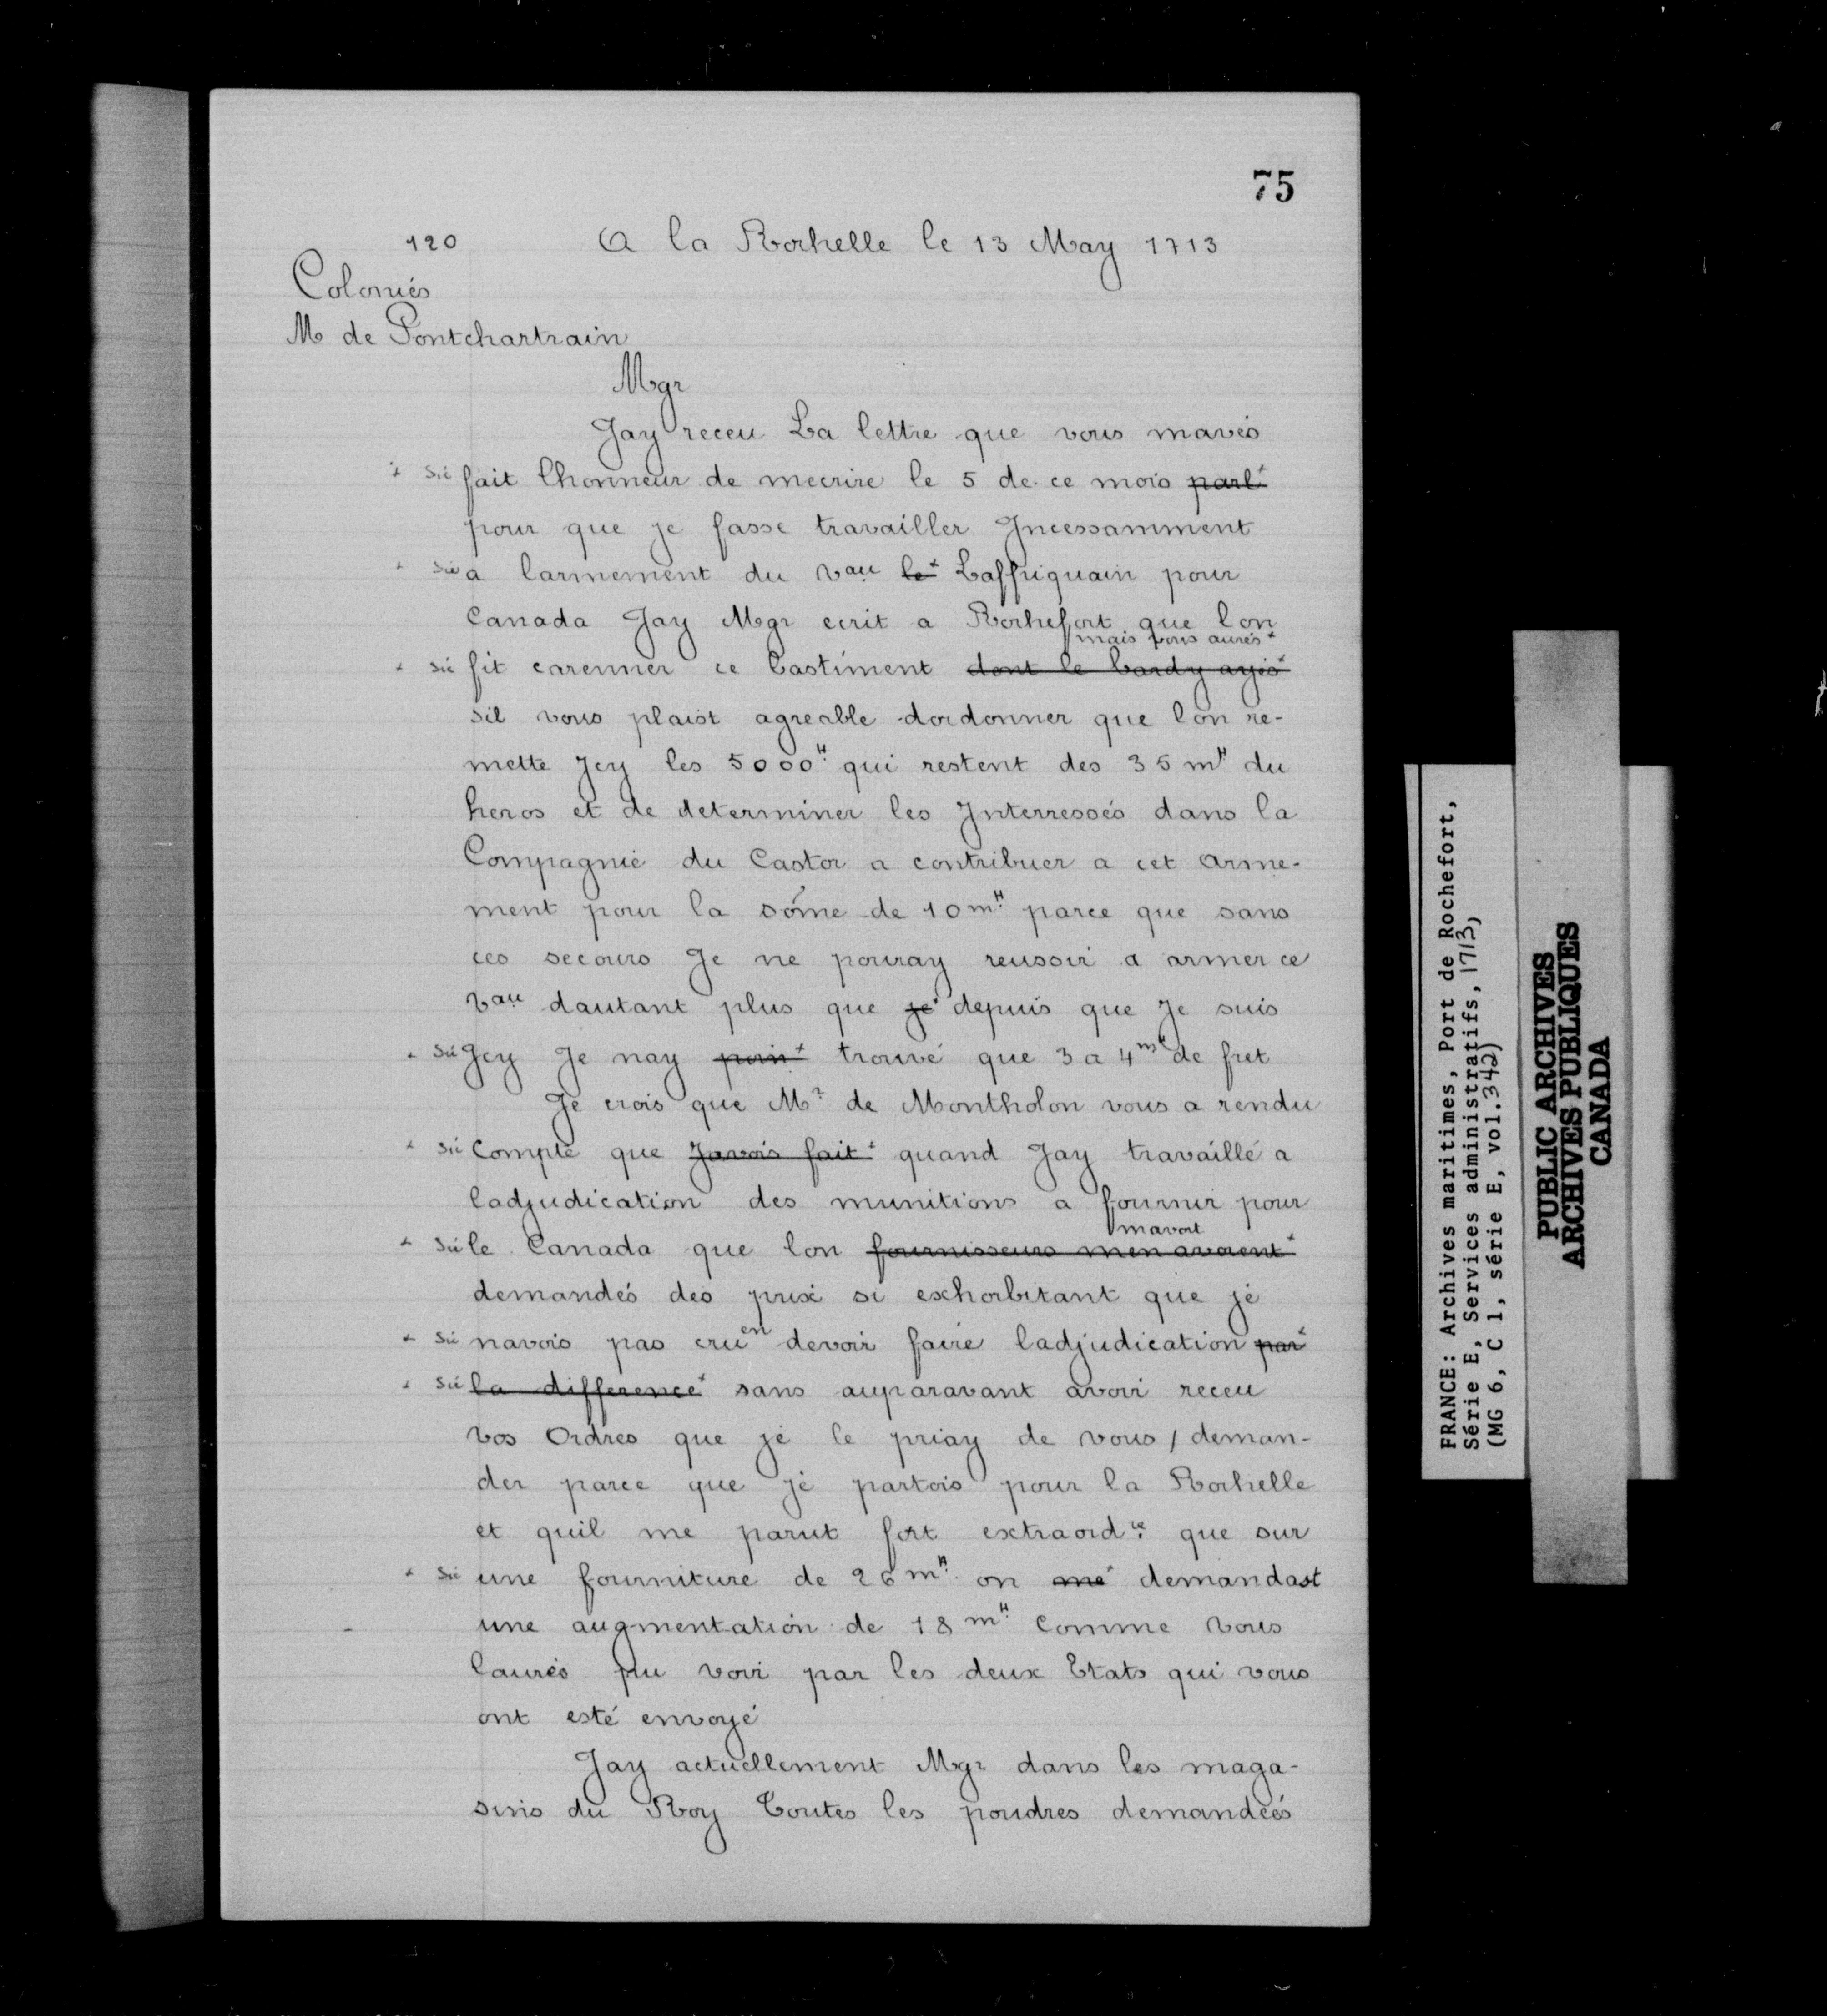 75
120 A la Rochelle le 13 May 1713
Colonies
M de Pontchartrain
Mgr
Jay receu La lettre que vous mavés
+ sic fait lhonneur de mecrire le 5 de ce mois parl+
pour que je fasse travailler Incessamment
+ sic a larmement du vau le+ Laffriquain pour
Canada Jay Mgr ecrit a Rochefort que lon
mais vous aurés+
+ sic fit carenner ce bastiment dont le bardy ayés+
sil vous plaist agreable dordonner que lon re-
mette Jcy les 5000# qui restent des 35 m# du
heros et de determiner les Jnterressés dans la
Compagnie du Castor a contribuer a cet arme-
ment pour la sóme de 10 m# parce que sans
ces secours Je ne pouray reussir a armer ce
vau dautant plus que je+ depuis que Je suis
+ sic Jcy Je nay poin+ trouvé que 3 a 4 m# de fret
Je crois que Mr de Montholon vous a rendu
+ sic Compte que Javois fait+ quand Jay travaillé a
ladjudication des munitions a fournir pour
mavoit
+ sic le Canada que lon fournisseurs men avoient+
demandés des prix si exhorbitant que je
+ sic navois pas cru en devoir faire ladjudication par+
+ sic la difference+ sans auparavant avoir receu
vos Ordres que je le priay de vous / deman-
der parce que je partois pour la Rochelle
et quil me parut fort extraordre que sur
+ sic une fourniture de 26 m# on me+ demandast
- une augmentation de 18 m# Comme vous
laurés pu voir par les deux Etats qui vous
ont esté envoyé
Jay actuellement Mgr dans les maga-
sins du Roy Toutes les poudres demandées
FRANCE: Archives maritimes, Port de Rochefort,
Série E, Services administratifs, 1713,
(MG 6, C 1, série E, vol. 342)
PUBLIC ARCHIVES
ARCHIVES PUBLIQUES
CANADA